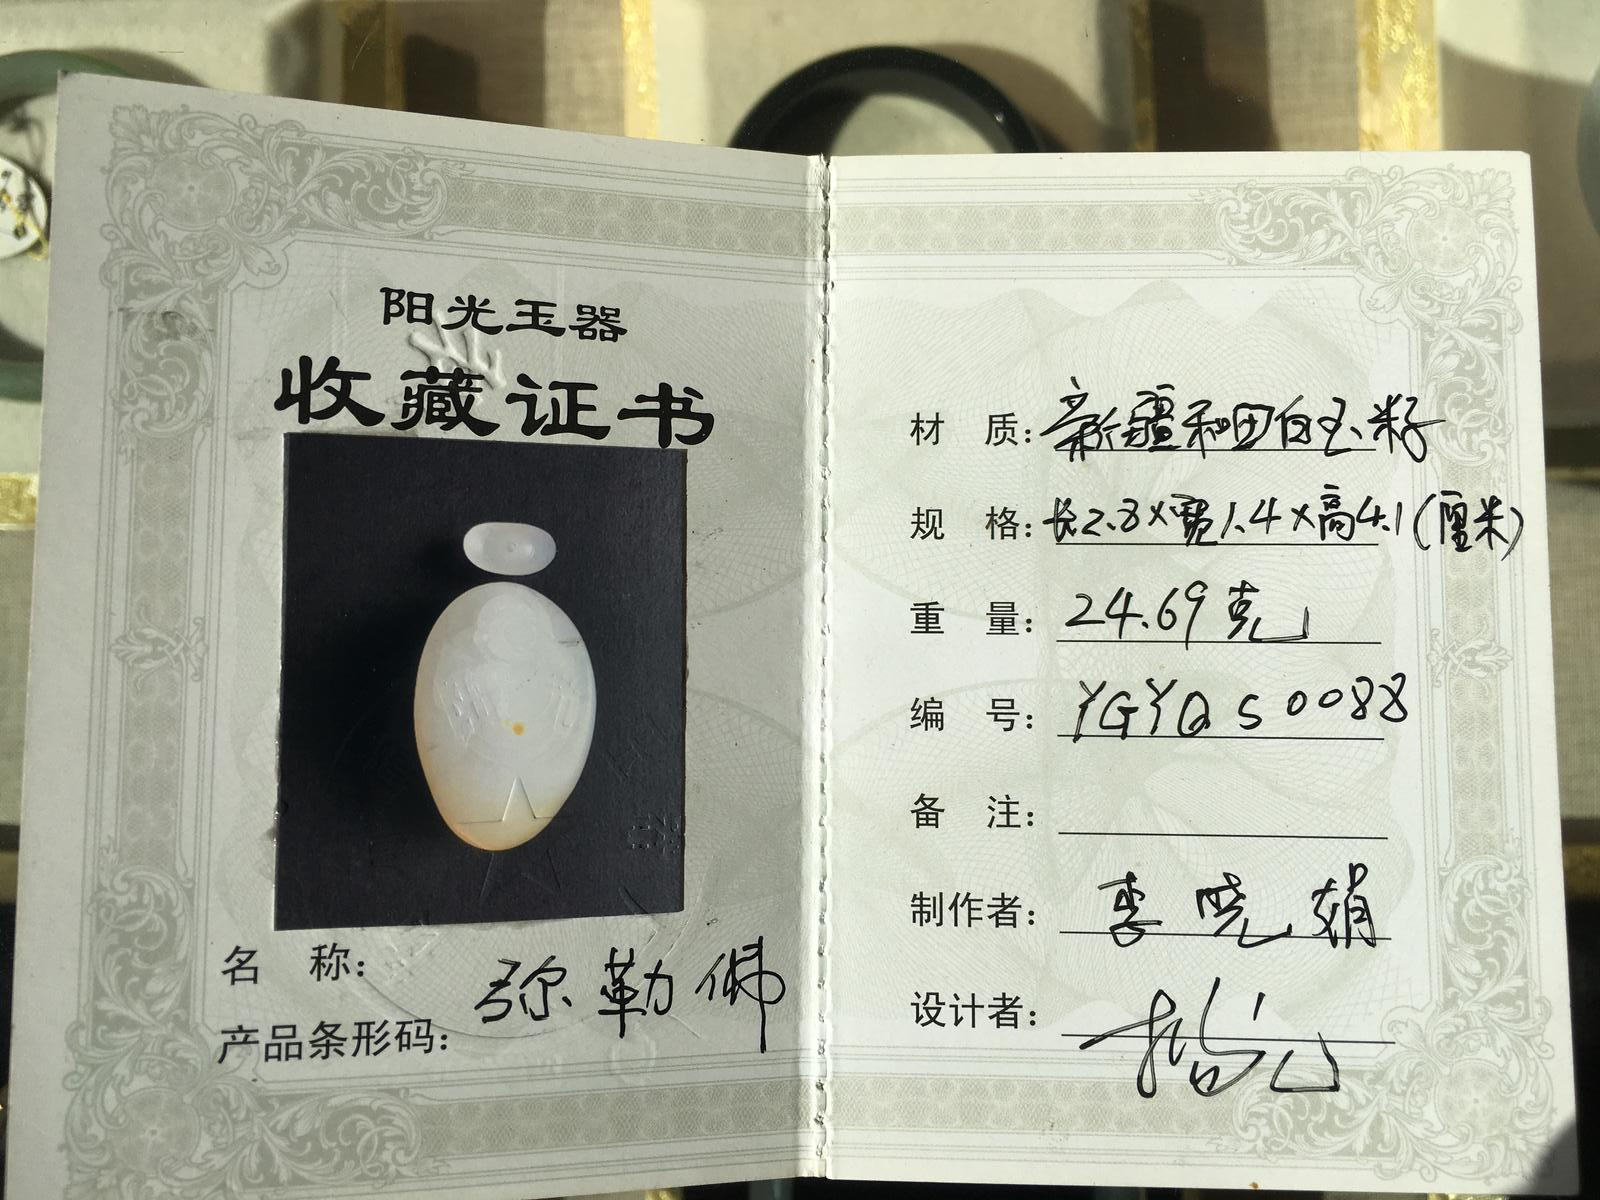 阳光玉器
收藏证书
名 称: 弥勒佛
产品条形码:
材 质: 新疆和田白玉籽
规 格: 长2.8×宽1.4×高4.1(厘米)
重 量: 24.69克
编 号: YGYQS0088
备 注:
制作者: 李晓娟
设计者: